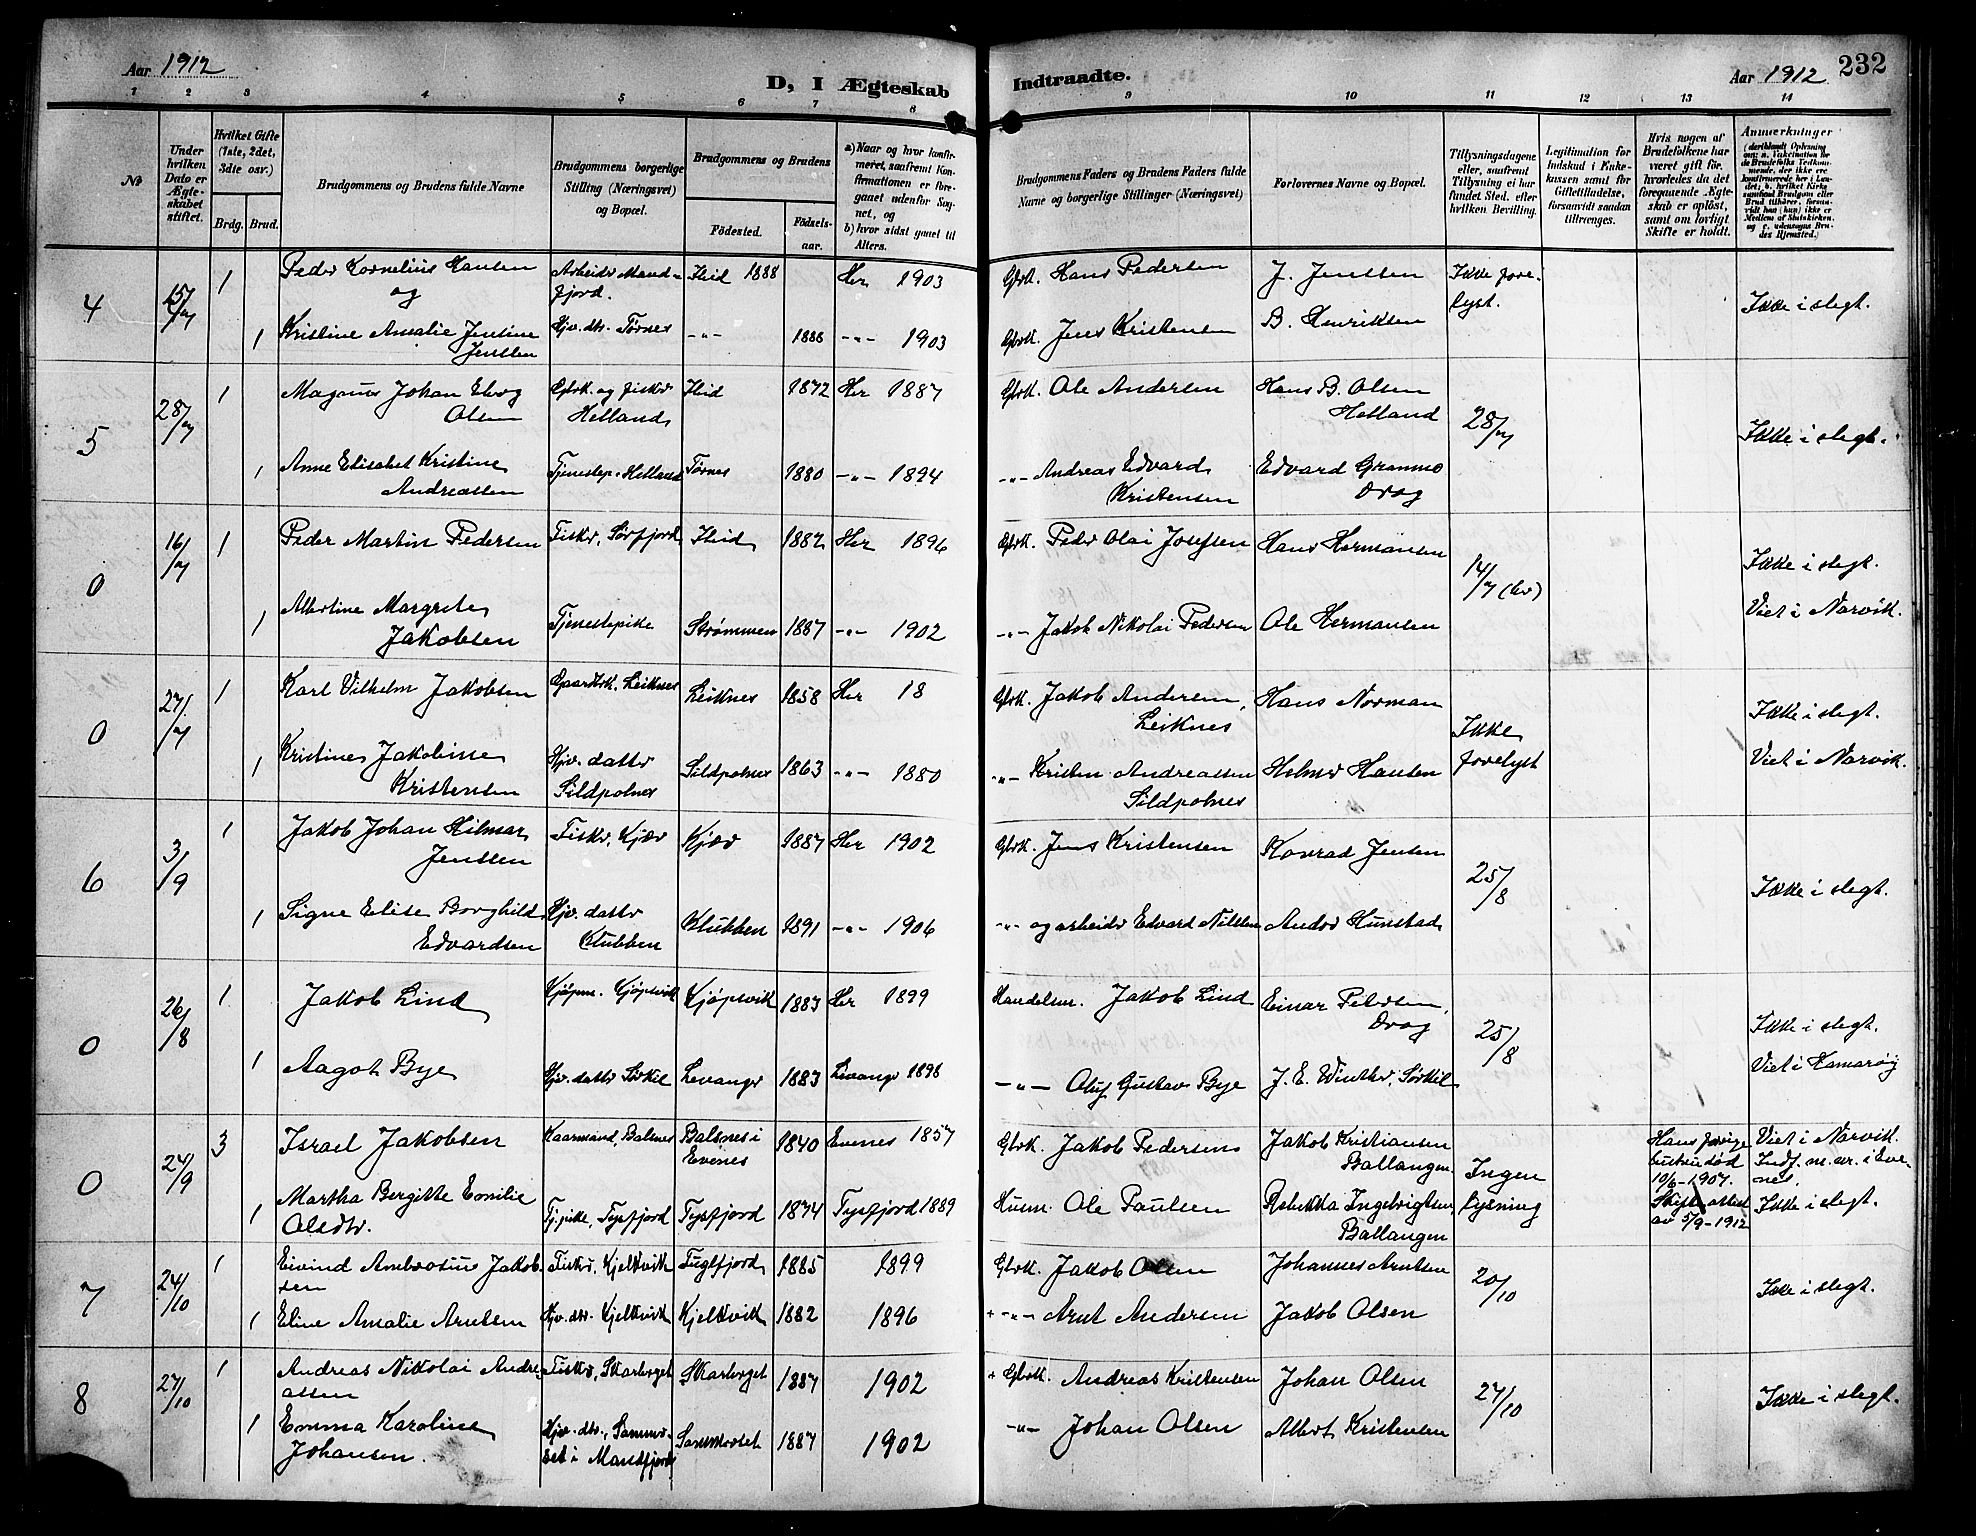 Aar 1912
D, I Ægteskab
Indtraadte.
Aar 1912
232
1 2 3 4 5 6 7 8 9 10 11 12 13 14
№
Under hvilken Dato er Ægteskabet stiftet.
Hvilket Gifte (1ste, 2det, 3dte osv.)
Brdg. Brud.
Brudgommens og Brudens fulde Navne
Brudgommens borgerlige Stilling (Næringsvei) og Bopæl.
Brudgommens og Brudens
Födested.
Födselsaar.
a) Naar og hvor konfirmeret, saafremt Konfirmationen er foregaaet udenfor Sognet, og
b) hvor sidst gaaet til Alters.
Brudgommens Faders og Brudens Faders fulde Navne og borgerlige Stillinger (Næringsvei)
Forlovernes Navne og Bopæl.
Tillysningsdagene eller, saafremt Tillysning ei har fundet Sted, efter hvilken Bevilling.
Legitimation for Indskud i Enkekassen samt for Giftetilladelse, forsaavidt saadan tiltrænges.
Hvis nogen af Brudefolkene har været gift før, hvorledes da det foregaaende Ægteskab er opløst, samt om lovligt Skifte er holdt.
Anmerkninger
4 15/7 1 Peder Kornelius Hansen Arbeider Mandfjord. Ibid 1888 Her 1903 Gbrk. Hans Pedersen J. Jenssen Ikke forelyst. Ikke i slegt.
og
1 Kristine Amalie Jensine Jenssen Gjv. dtr. Tørnes -"- 1888 -"- 1903 Gbrk. Jens Kristensen B. Henriksen
5 28/7 1 Magnus Johan Elvog Olsen Gbrk. og fisker Helland Ibid 1872 Her 1887 Gbrk. Ole Andersen Hans B. Olsen Helland 28/7 Ikke i slegt.
1 Anne Elisabet Kristine Andreassen Tjenestep. Helland Tørnes 1880 -"- 1894 -"- Andreas Edvard Kristensen Edvard Grammo Drag
0 16/7 1 Peder Martin Pedersen Fisker, Sørfjord Ibid 1882 Her 1896 Gbrk. Peder Olai Josefsen Hans Hermansen 14/7 Ikke i slegt.
1 Albertine Margrete Jakobsen Tjenestepike Strømmen 1887 -"- 1902 -"- Jakob Nikolai Pedersen Ole Hermansen Viet i Narvik.
0 27/7 1 Karl Vilhelm Jakobsen Gaardbrk. Leiknes Leiknes 1858 Her 18 Gbrk. Jakob Andersen, Leiknes Hans Norman Ikke forelyst Ikke i slegt.
1 Kristine Jakobine Kristensen Gjv. datter Sildpolnes Sildpolnes 1863 -"- 1880 -"- Kristen Andreassen Sildpolnes Helmer Hansen Viet i Narvik.
6 3/9 1 Jakob Johan Hilmar Jenssen Fisker, Kjær Kjær 1887 Her 1902 Gbrk. Jens Kristensen Konrad Jensen 25/8 Ikke i slegt.
1 Signe Elise Borghild Edvardsen Gjv. datter Klubben Klubben 1891 -"- 1906 -"- og arbeider Edvard Nilssen Andor Hunstad
0 26/8 1 Jakob Lind Kjøpm. Kjøpsvik Kjøpsvik 1883 Her 1899 Handelsm. Jakob Lind Einar Petersen, Drag 25/8 Ikke i slegt.
1 Aagot Bye Gjv. datter Sørkil Levanger 1883 Levanger 1898 -"- Oluf Gustav Bye J. E. Winther, Sørkil Viet i Hamarøy
0 24/9 3 Israel Jakobsen Kaarmand, Balsnes Balsnes i Evenes 1840 Evenes 1857 Gbrk. Jakob Pedersen Jakob Kristiansen Ballangen Ingen lysning Hans forrige hustru død 10/6-1907. Skifteattest av 5/9-1912 Viet i Narvik. Indf. m. nr. i Evenes. Ikke i slegt.
1 Martha Bergitte Emilie Olsdtr. Tj.pike, Tysfjord Tysfjord 1874 Tysfjord 1889 Husm. Ole Paulsen Rebekka Ingebrigtsen, Ballangen
7 24/10 1 Eivind Ambrosius Jakobsen Fisker, Kjelkvik Fuglfjord 1885 1899 Gbrk. Jakob Olsen Johannes Arntsen 20/10 Ikke i slegt.
1 Eline Amalie Arntsen Gjv. dtr. Kjelkvik Kjelkvik 1882 1896 + -"- Arnt Andersen Jakob Olsen
8 27/10 1 Andreas Nikolai Andreassen Fisker, Skarberget Skarberget 1887 1902 + Gbrk. Andreas Kristensen Johan Olsen 27/10 Ikke i slegt.
1 Emma Karoline Johansen. Gjv. dtr., Sommerset i Mandfjord Sommerset 1887 1902 -"- Johan Olsen Albert Kristensen